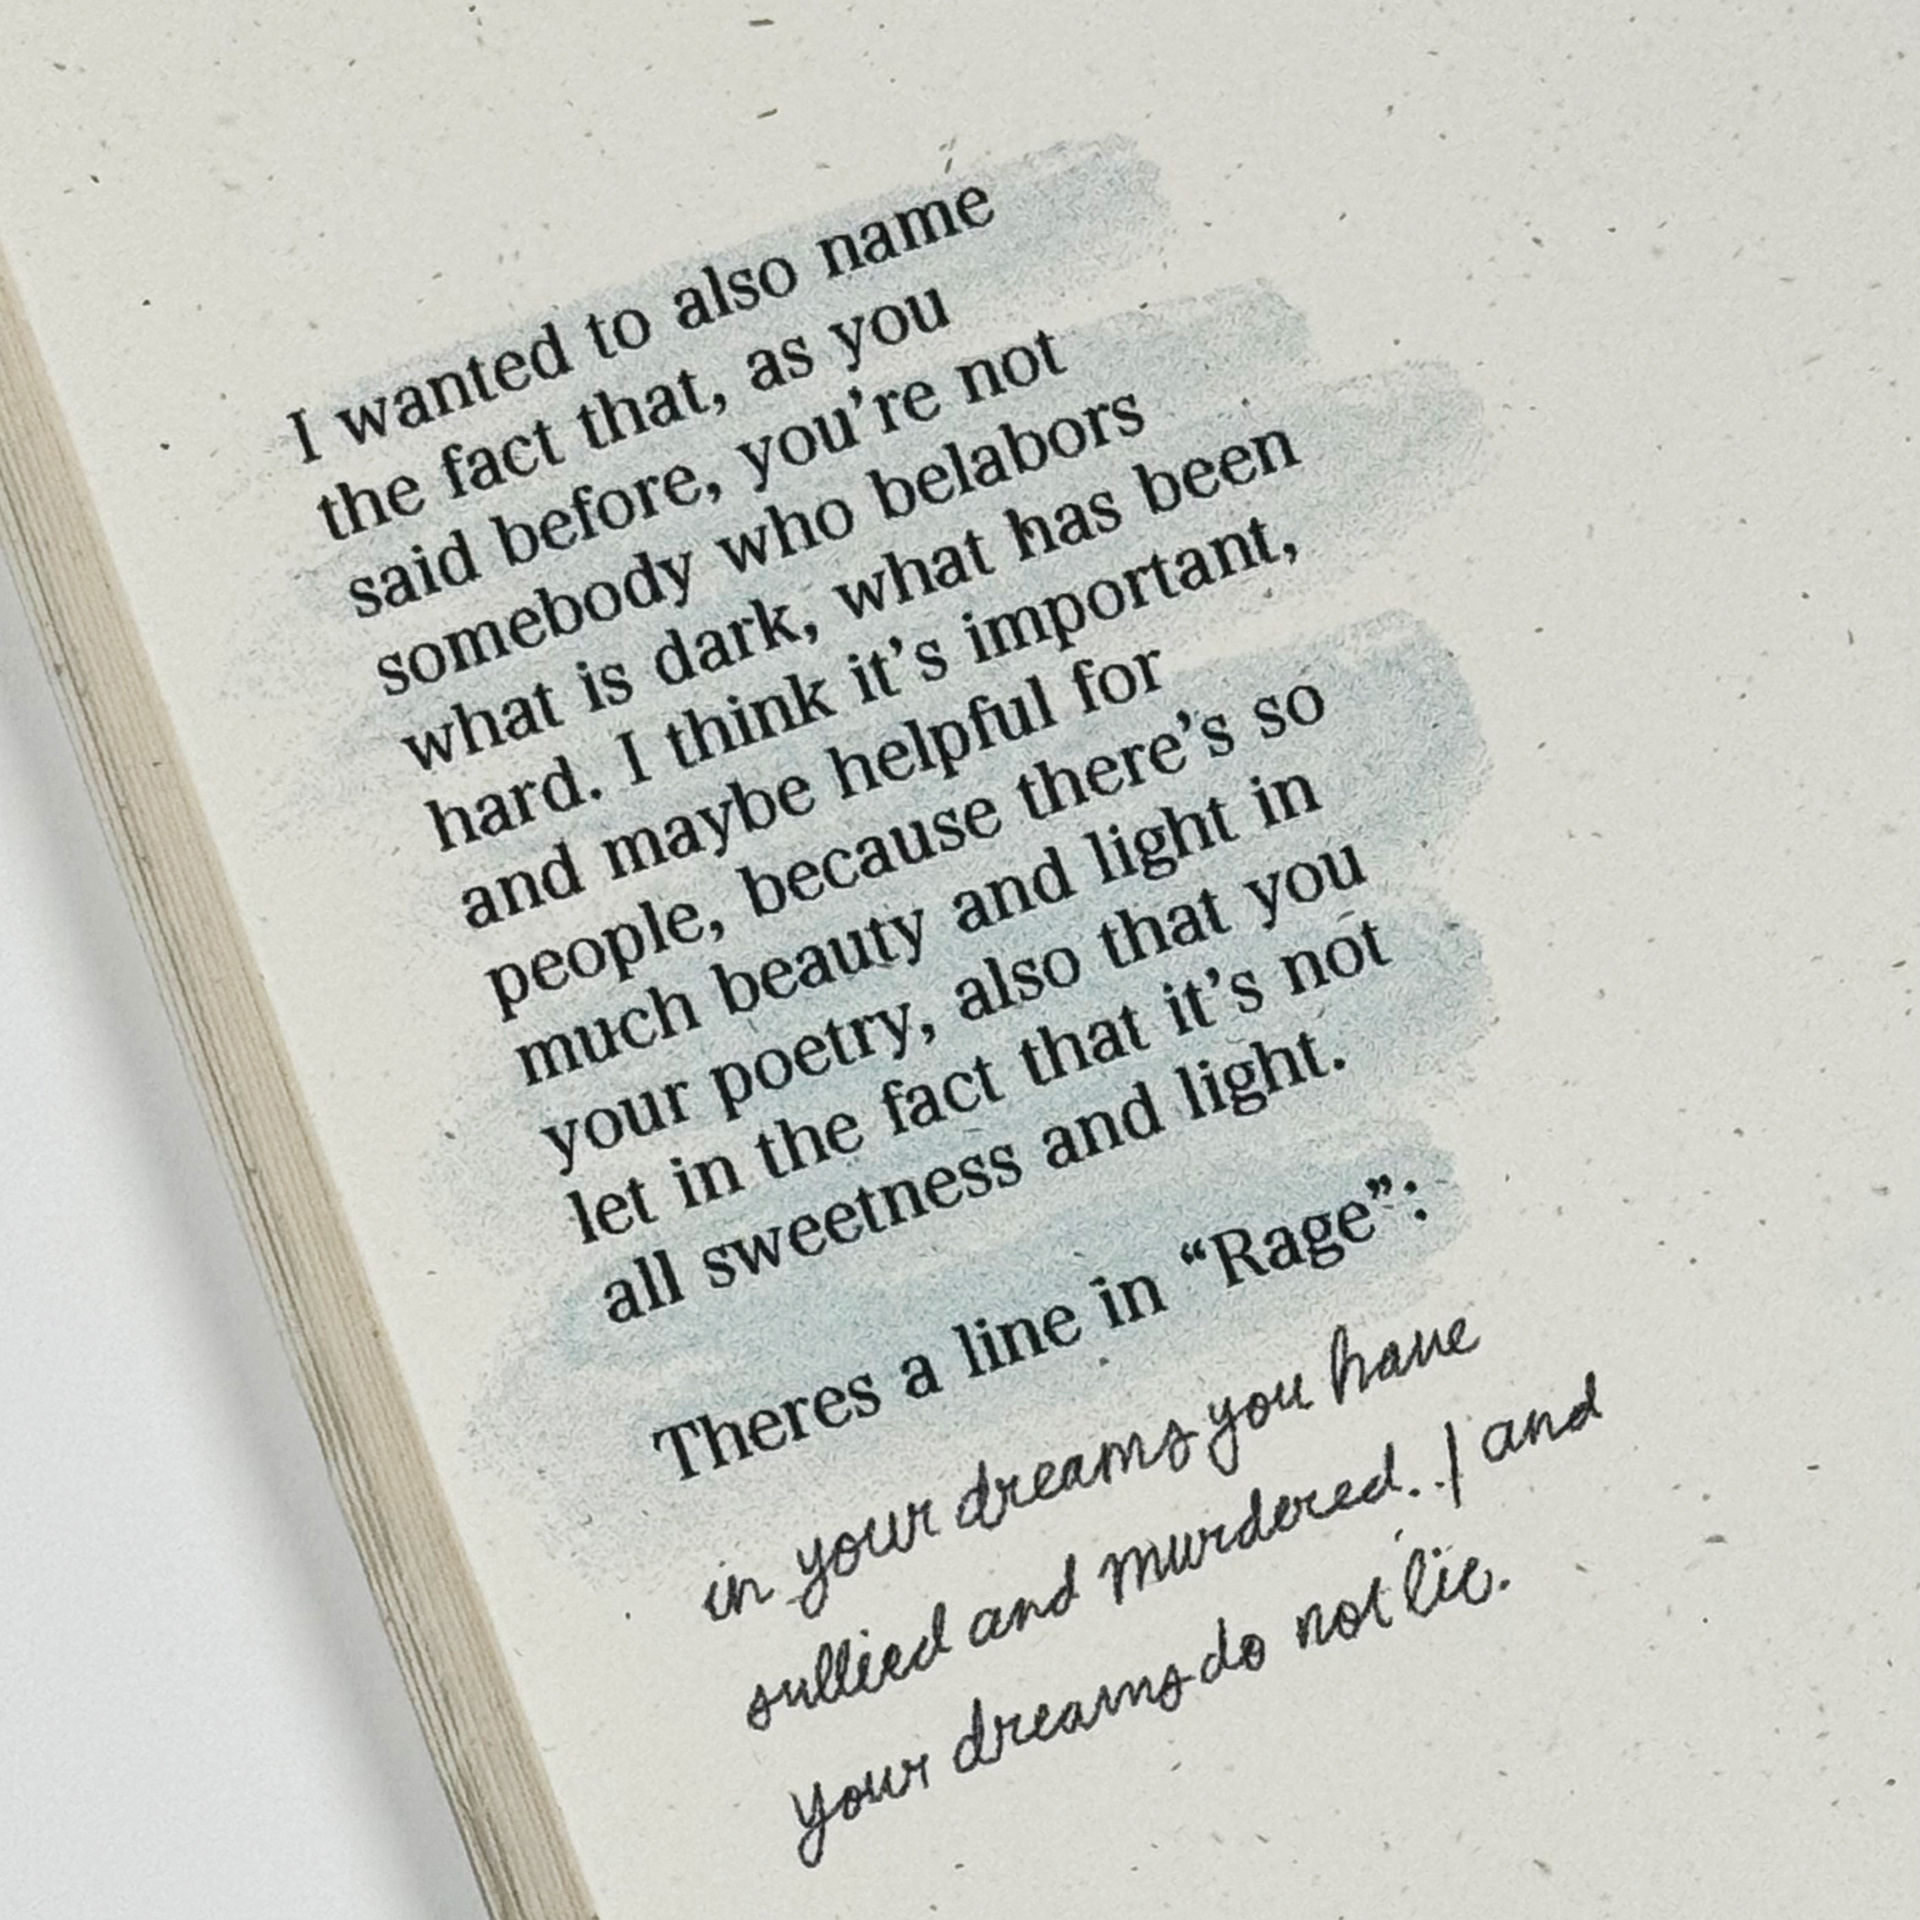 I wanted to also name
the fact that, as you
said before, you're not
somebody who belabors
what is dark, what has been
hard. I think it's important,
and maybe helpful for
people, because there's so
much beauty and light in
your poetry, also that you
let in the fact that it's not
all sweetness and light.
Theres a line in “Rage”:
in your dreams you have
sullied and murdered. / and
your dreams do not lie.